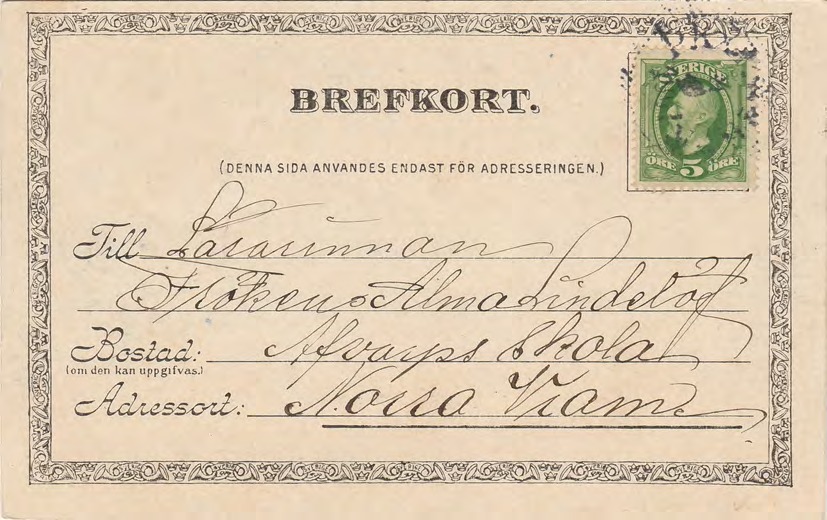 BREFKORT.
SVERIGE
ÖRE 5 ÖRE
(DENNA SIDA ANVÄNDES ENDAST FÖR ADRESSERINGEN.)
Till Lärarinnan
Fröken Alma Lindelöf
Bostad: Afvarps Skola
(om den kan uppgifvas.)
Adressort: Norra Vram